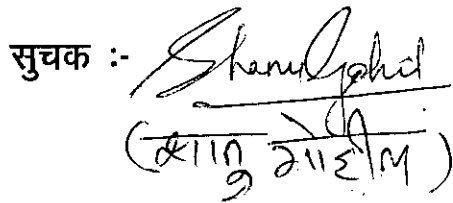 सुचक :- Shanu Gohil
(शानु गोहील)